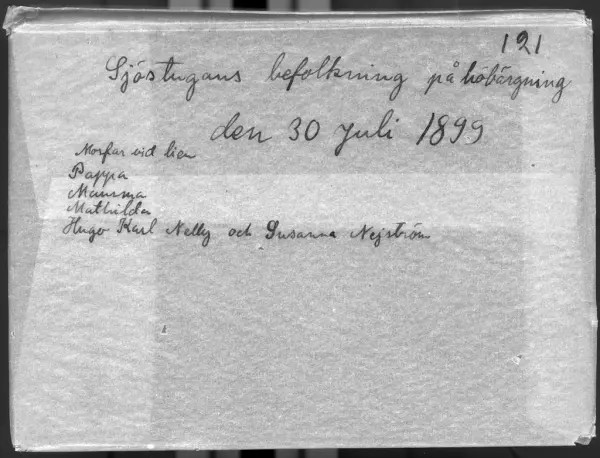 121
Sjöstugans befolkning på höbärgning
den 30 Juli 1899
Morfar vid lien
Pappa
Mamma
Mathilda
Hugo Karl Nelly och Susanna Nejström